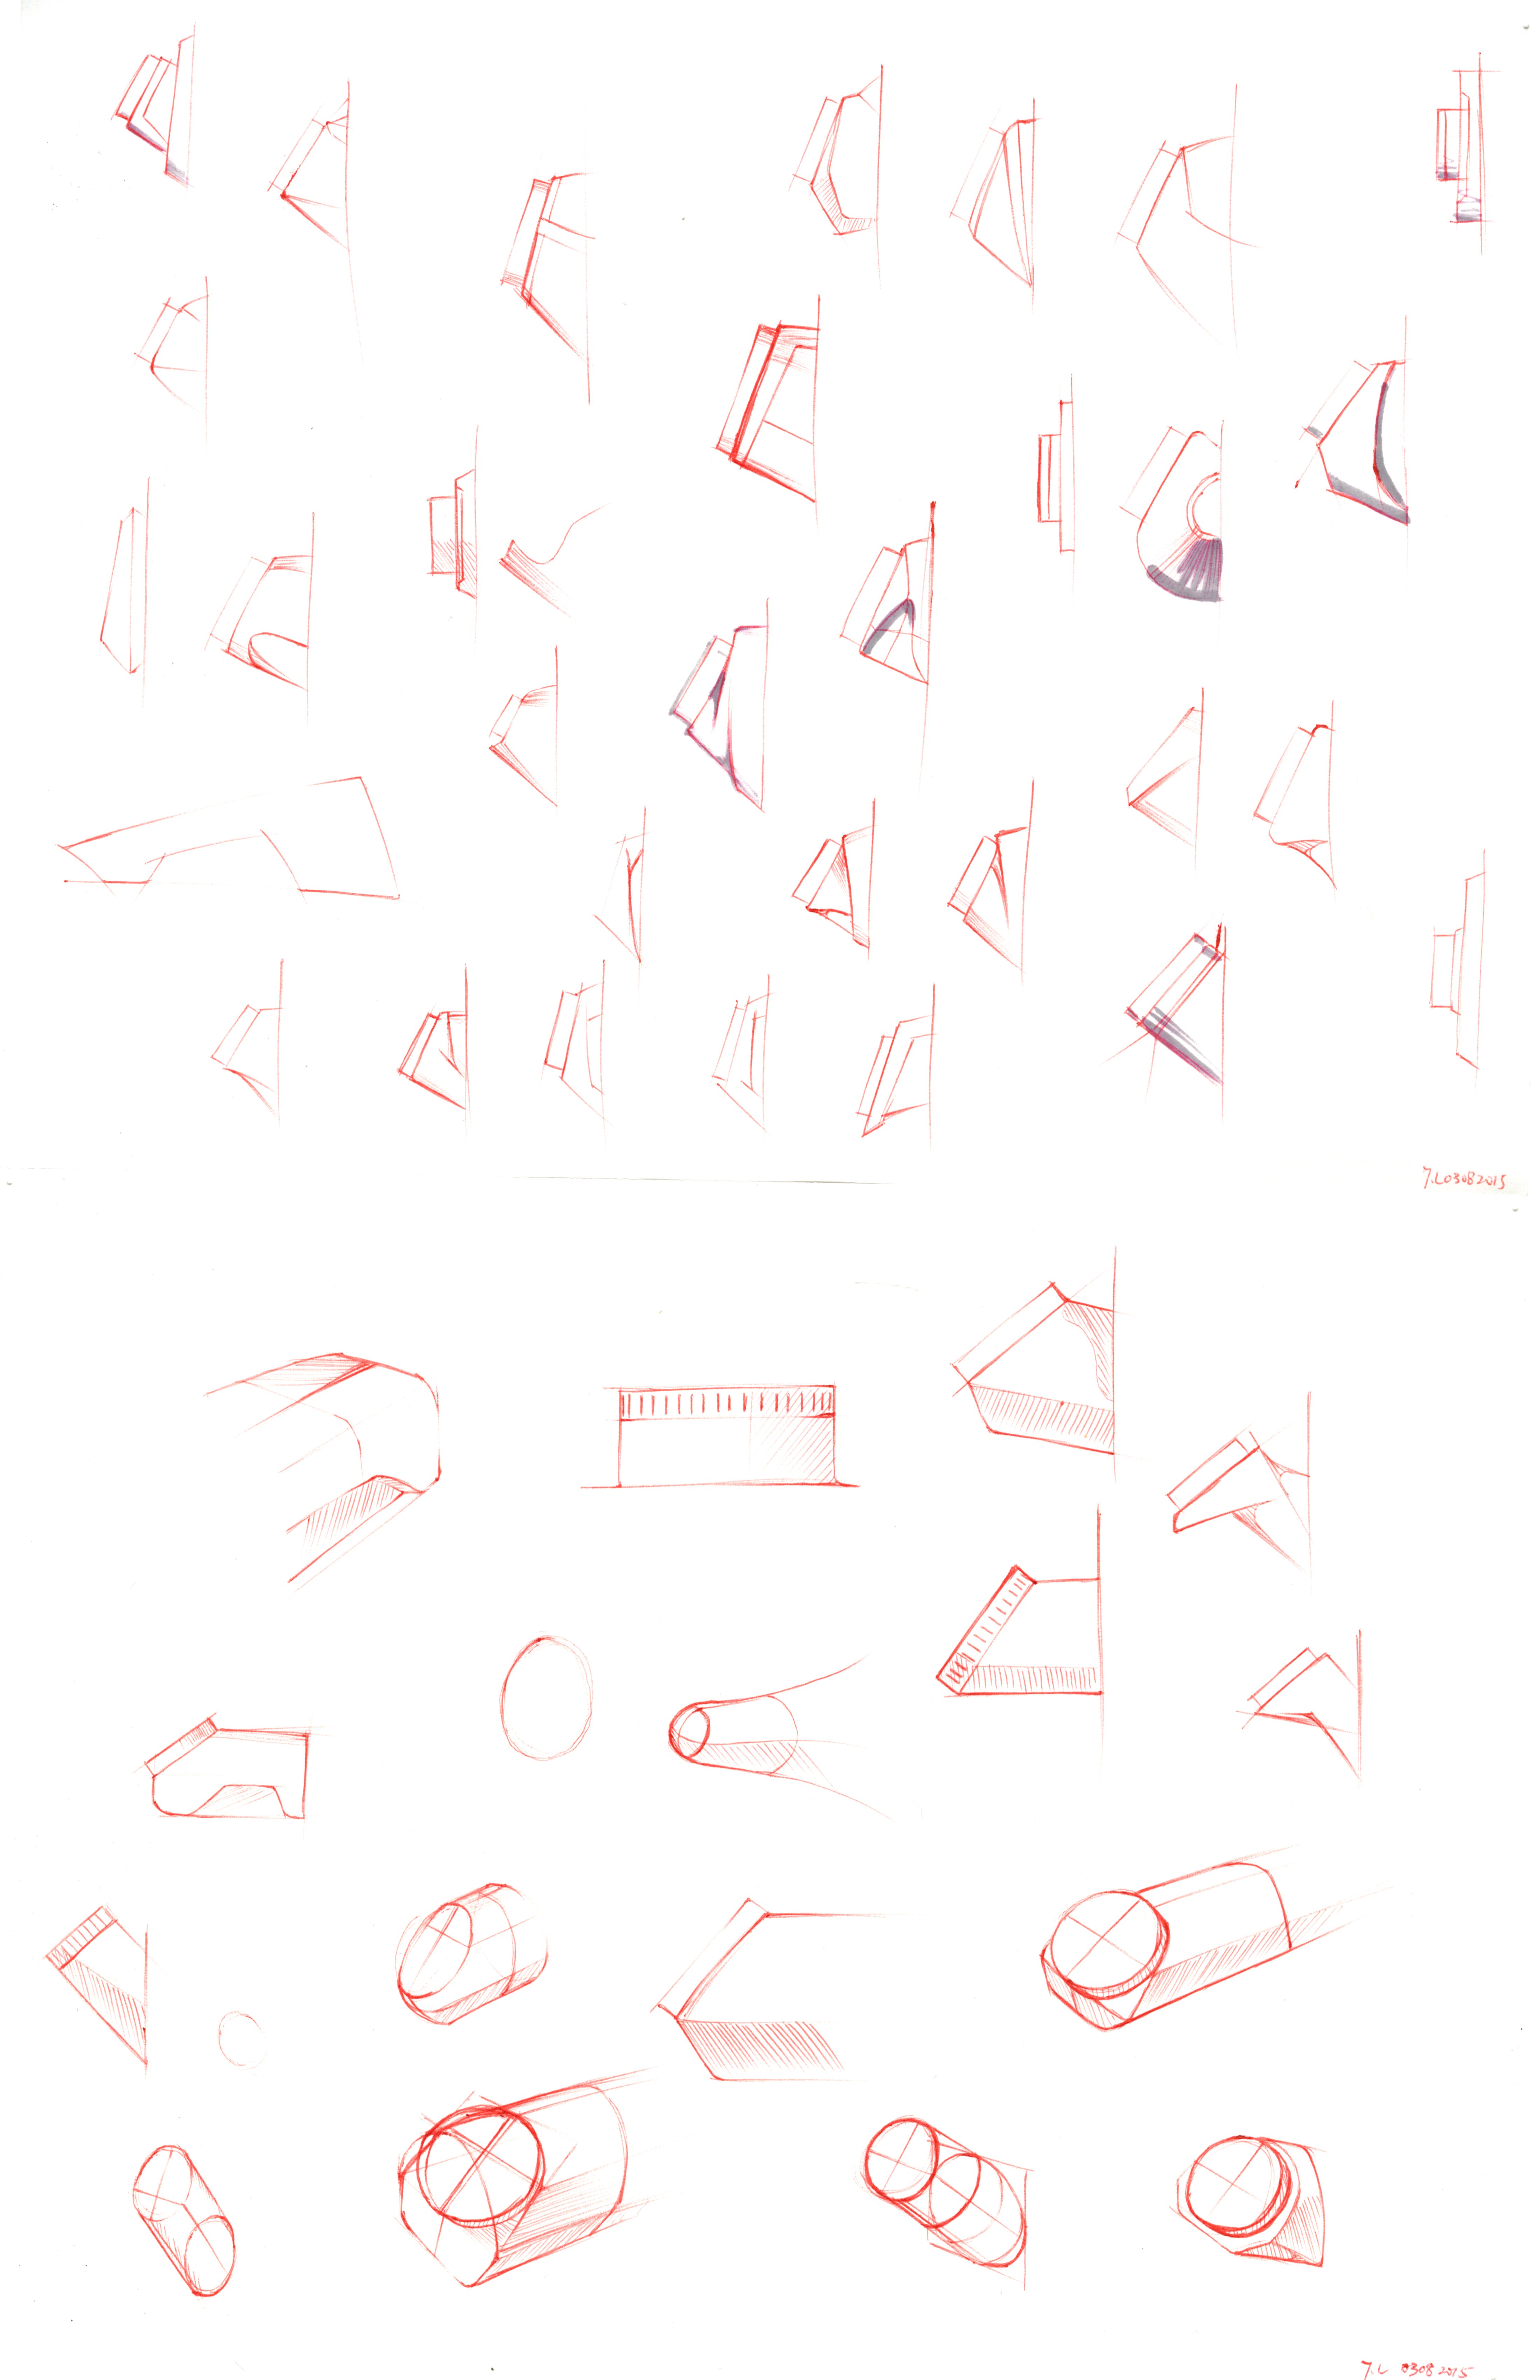 7.L03082015
7.L 0308 2015